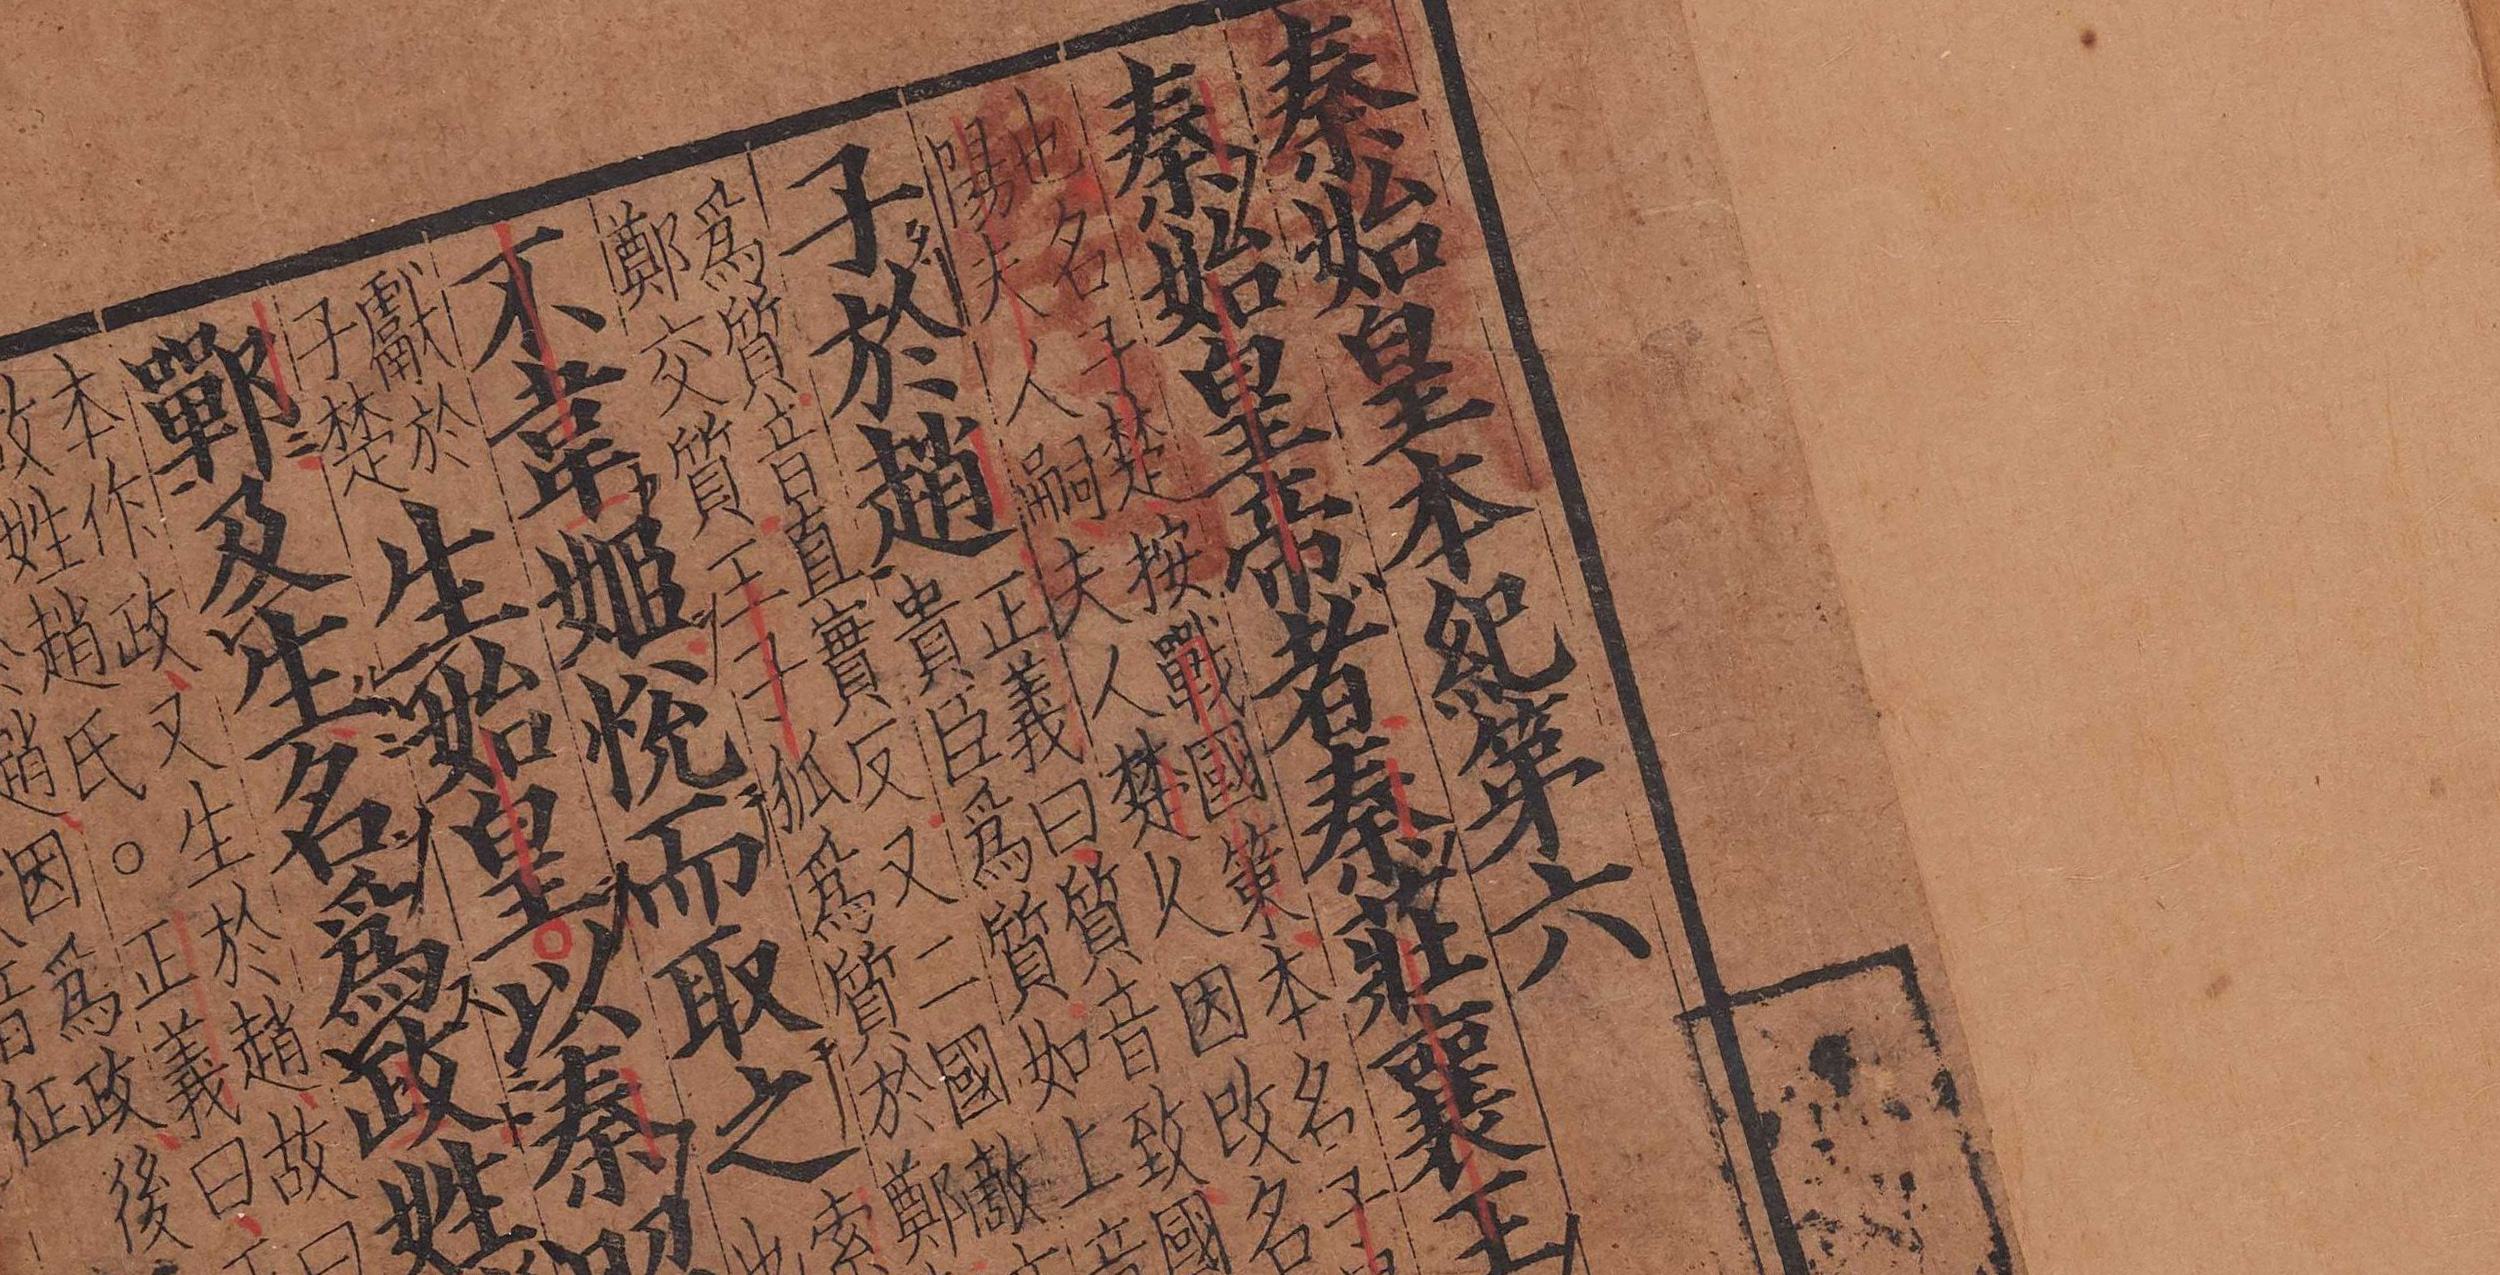 秦始皇本紀第六
秦始皇帝者秦莊襄王
也名子楚按戰國策本名子
陽夫人嗣夫人楚人因改名
子於趙 正義曰質音致國
貴臣爲質如上音
爲質音直實反又二國敵
鄭交質王子狐爲質於鄭
不韋姬悅而取之 索
獻於
子楚 生始皇以秦昭
鄲及生名爲政姓
本作政又生於趙故曰
故姓趙氏。正義曰正
趙因爲政後
音征